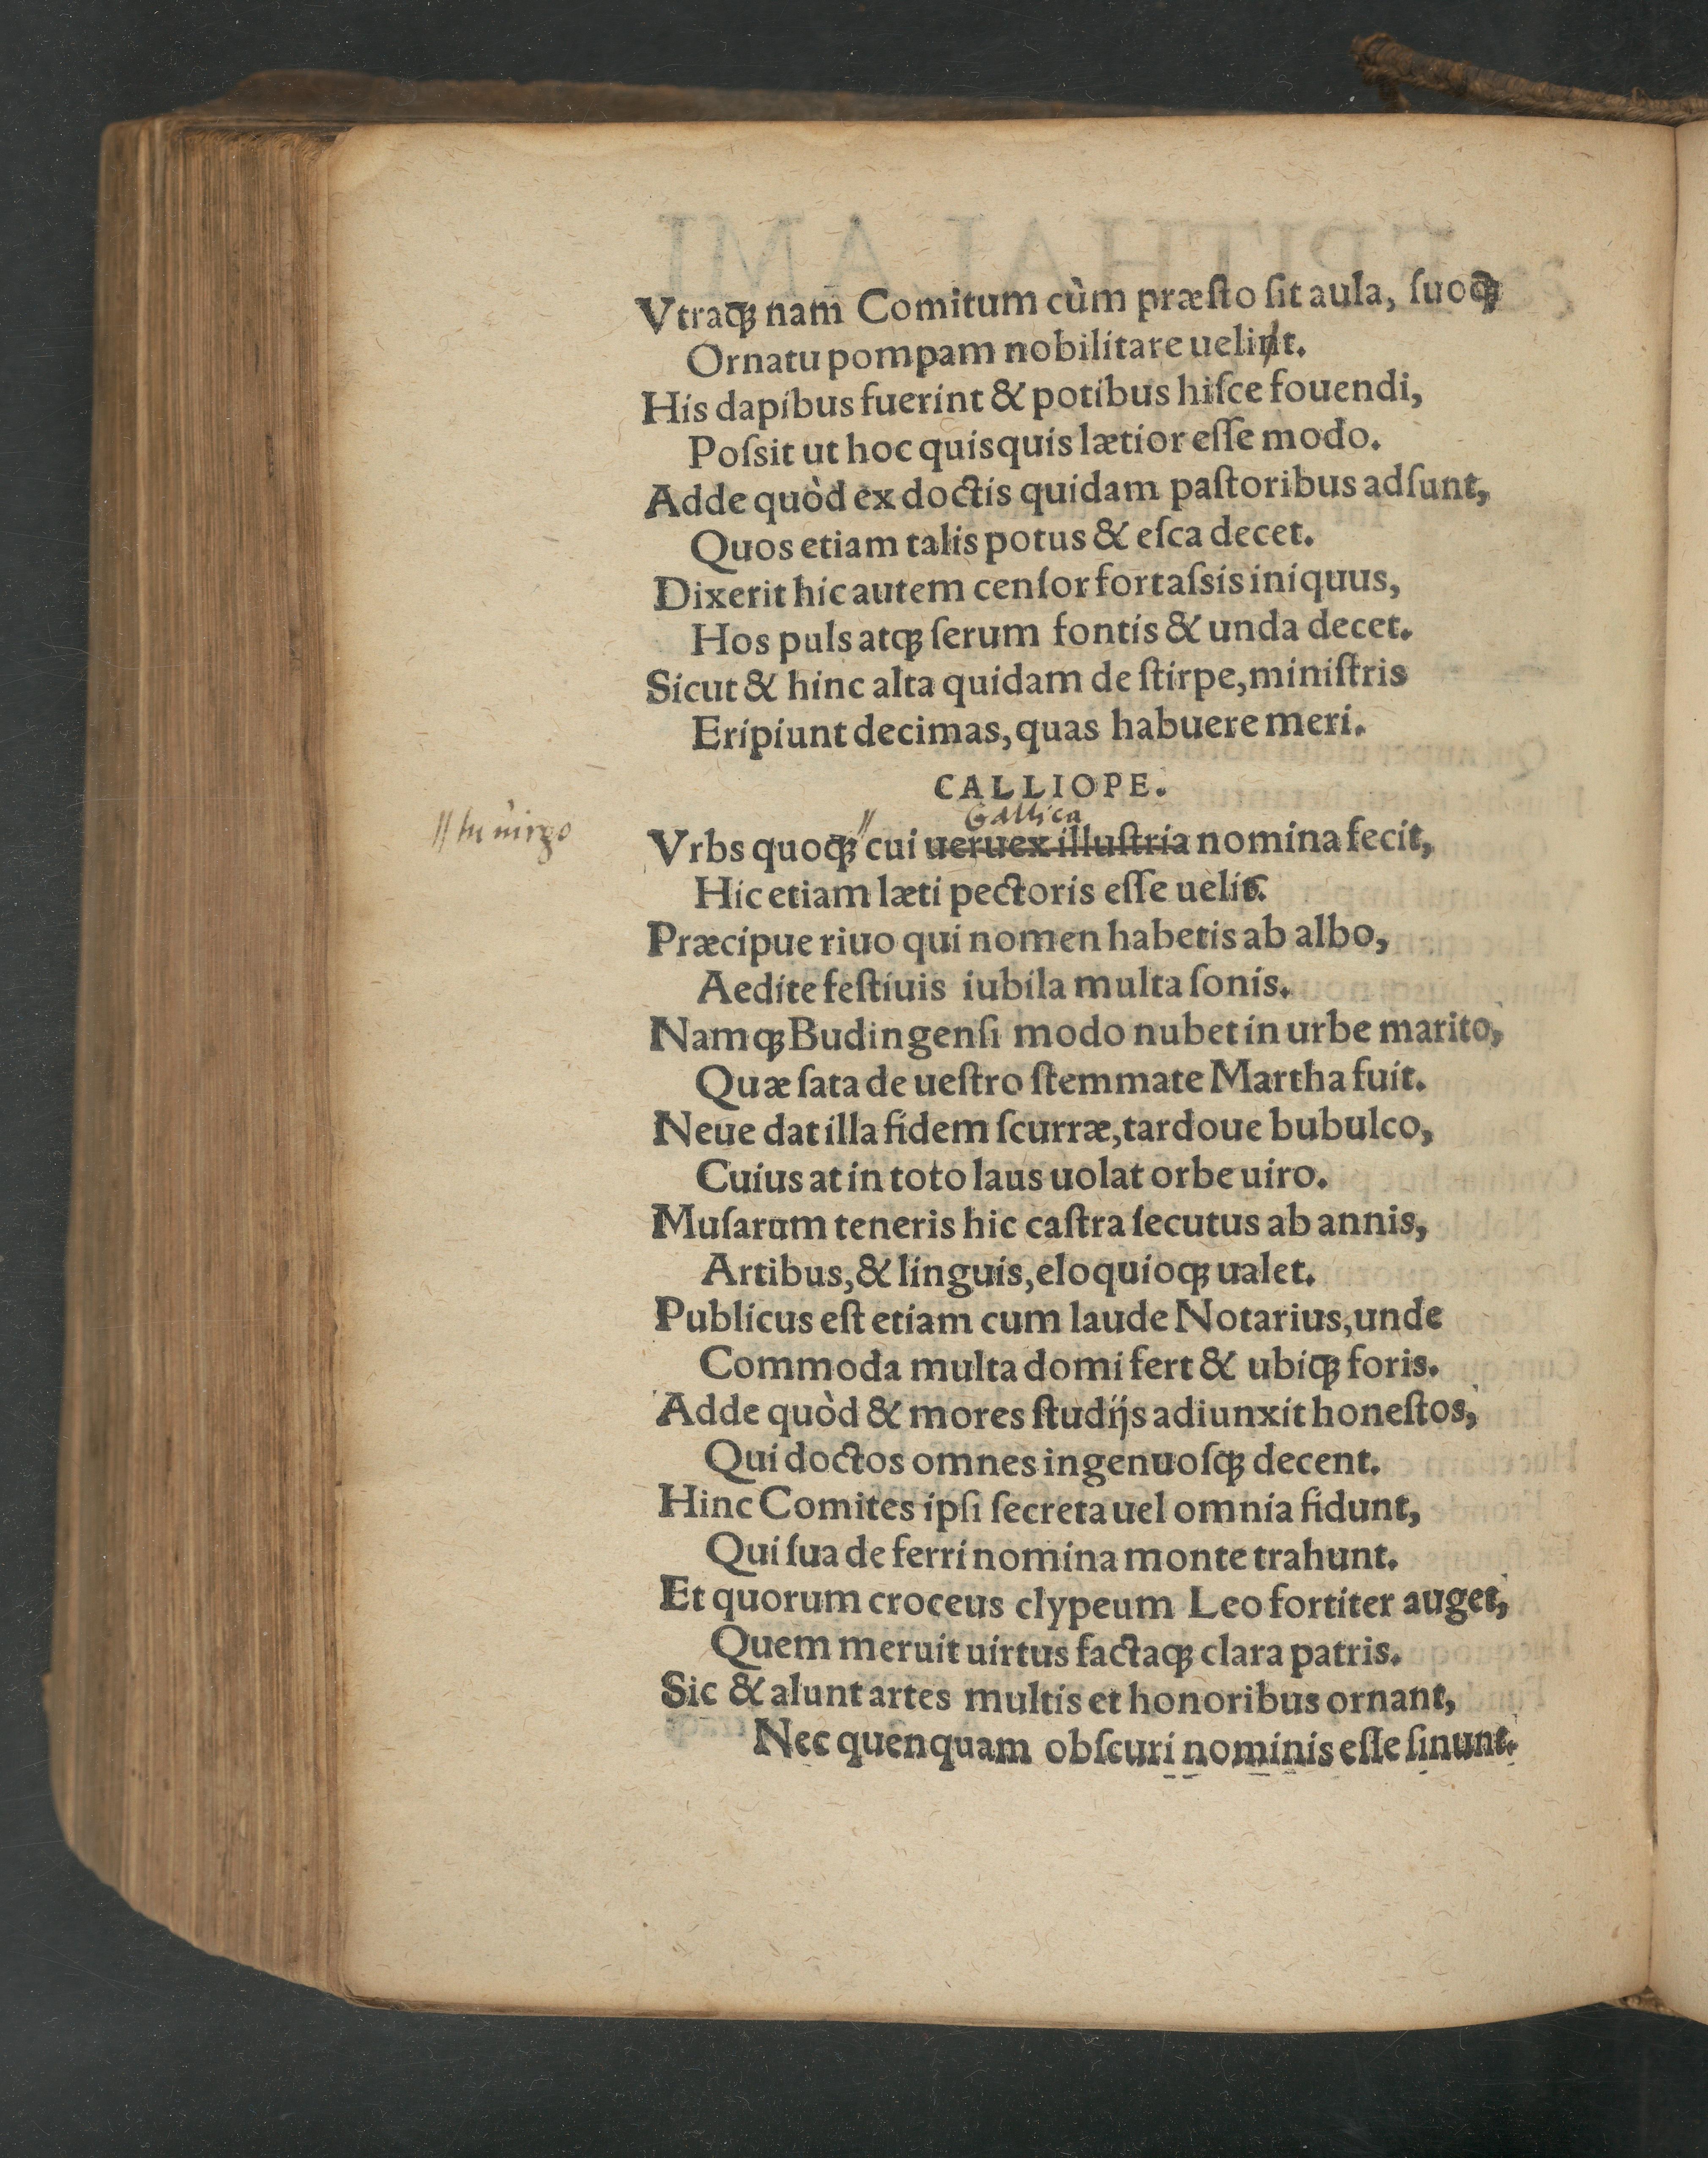 Vtraqꝫ nam Comitum cùm præſto ſit aula, ſuoqꝫ
Ornatu pompam nobilitare uelint.
His dapibus fuerint & potibus hiſce fouendi,
Poſsit ut hoc quisquis lætior eſſe modo.
Adde quòd ex doctis quidam paſtoribus adſunt,
Quos etiam talis potus & eſca decet.
Dixerit hic autem cenſor fortaſsis iniquus,
Hos puls atqꝫ ſerum fontis & unda decet.
Sicut & hinc alta quidam de ſtirpe, miniſtris
Eripiunt decimas, quas habuere meri.
CALLIOPE.
Gallica
// tu uirgo
Vrbs quoqꝫ // cui ueruex illuſtria nomina fecit,
Hic etiam læti pectoris eſſe uelis.
Præcipue riuo qui nomen habetis ab albo,
Aedite feſtiuis iubila multa ſonis.
Namqꝫ Budingenſi modo nubet in urbe marito,
Quæ ſata de ueſtro ſtemmate Martha fuit.
Neue dat illa fidem ſcurræ, tardoue bubulco,
Cuius at in toto laus uolat orbe uiro.
Muſarum teneris hic caſtra ſecutus ab annis,
Artibus, & linguis, eloquioqꝫ ualet.
Publicus eſt etiam cum laude Notarius, unde
Commoda multa domi fert & ubiqꝫ foris.
Adde quòd & mores ſtudijs adiunxit honeſtos,
Qui doctos omnes ingenuoſqꝫ decent.
Hinc Comites ipſi ſecreta uel omnia fidunt,
Qui ſua de ferri nomina monte trahunt.
Et quorum croceus clypeum Leo fortiter auget,
Quem meruit uirtus factaqꝫ clara patris.
Sic & alunt artes multis et honoribus ornant,
Nec quenquam obſcuri nominis eſſe ſinunt.